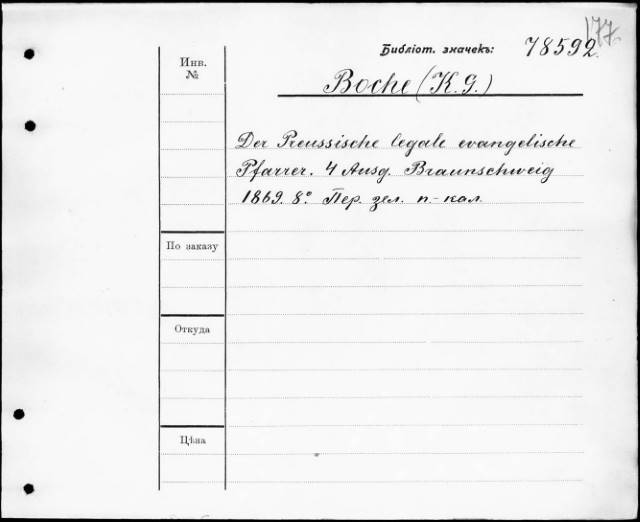 177.
Библіот. значекъ: 78592
Инв.
№
Boche (K. G.)
Der Preussische legale evangelische
Pfarrer. 4 Ausg. Braunschweig
1869. 8º. Пер. зел. п.-кал.
По заказу
Откуда
Цѣна